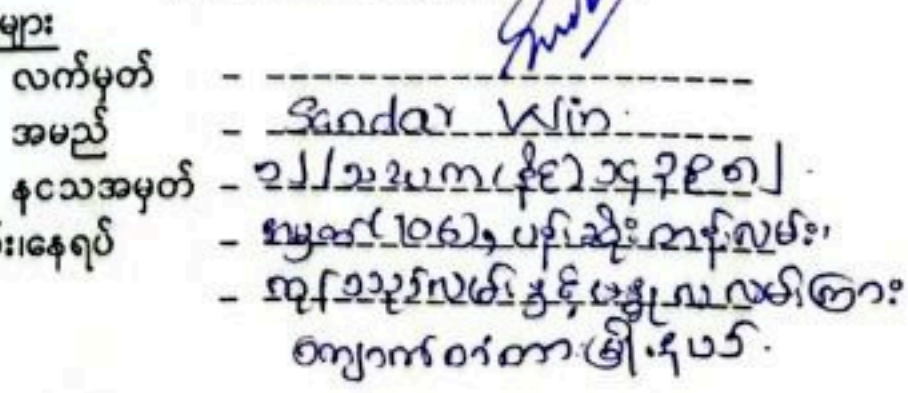 များ
လက်မှတ် -
အမည် - Sandar Win
နငသအမှတ် - ၁၂/ဒပက(နိုင်)
း၊နေရပ် - အမှတ်(106), ပန်းဆိုးတန်းလမ်း၊
- ကုန်သည်လမ်းနှင့် ဗန္ဓုလလမ်းကြား
ကျောက်တံတားမြို့နယ်.